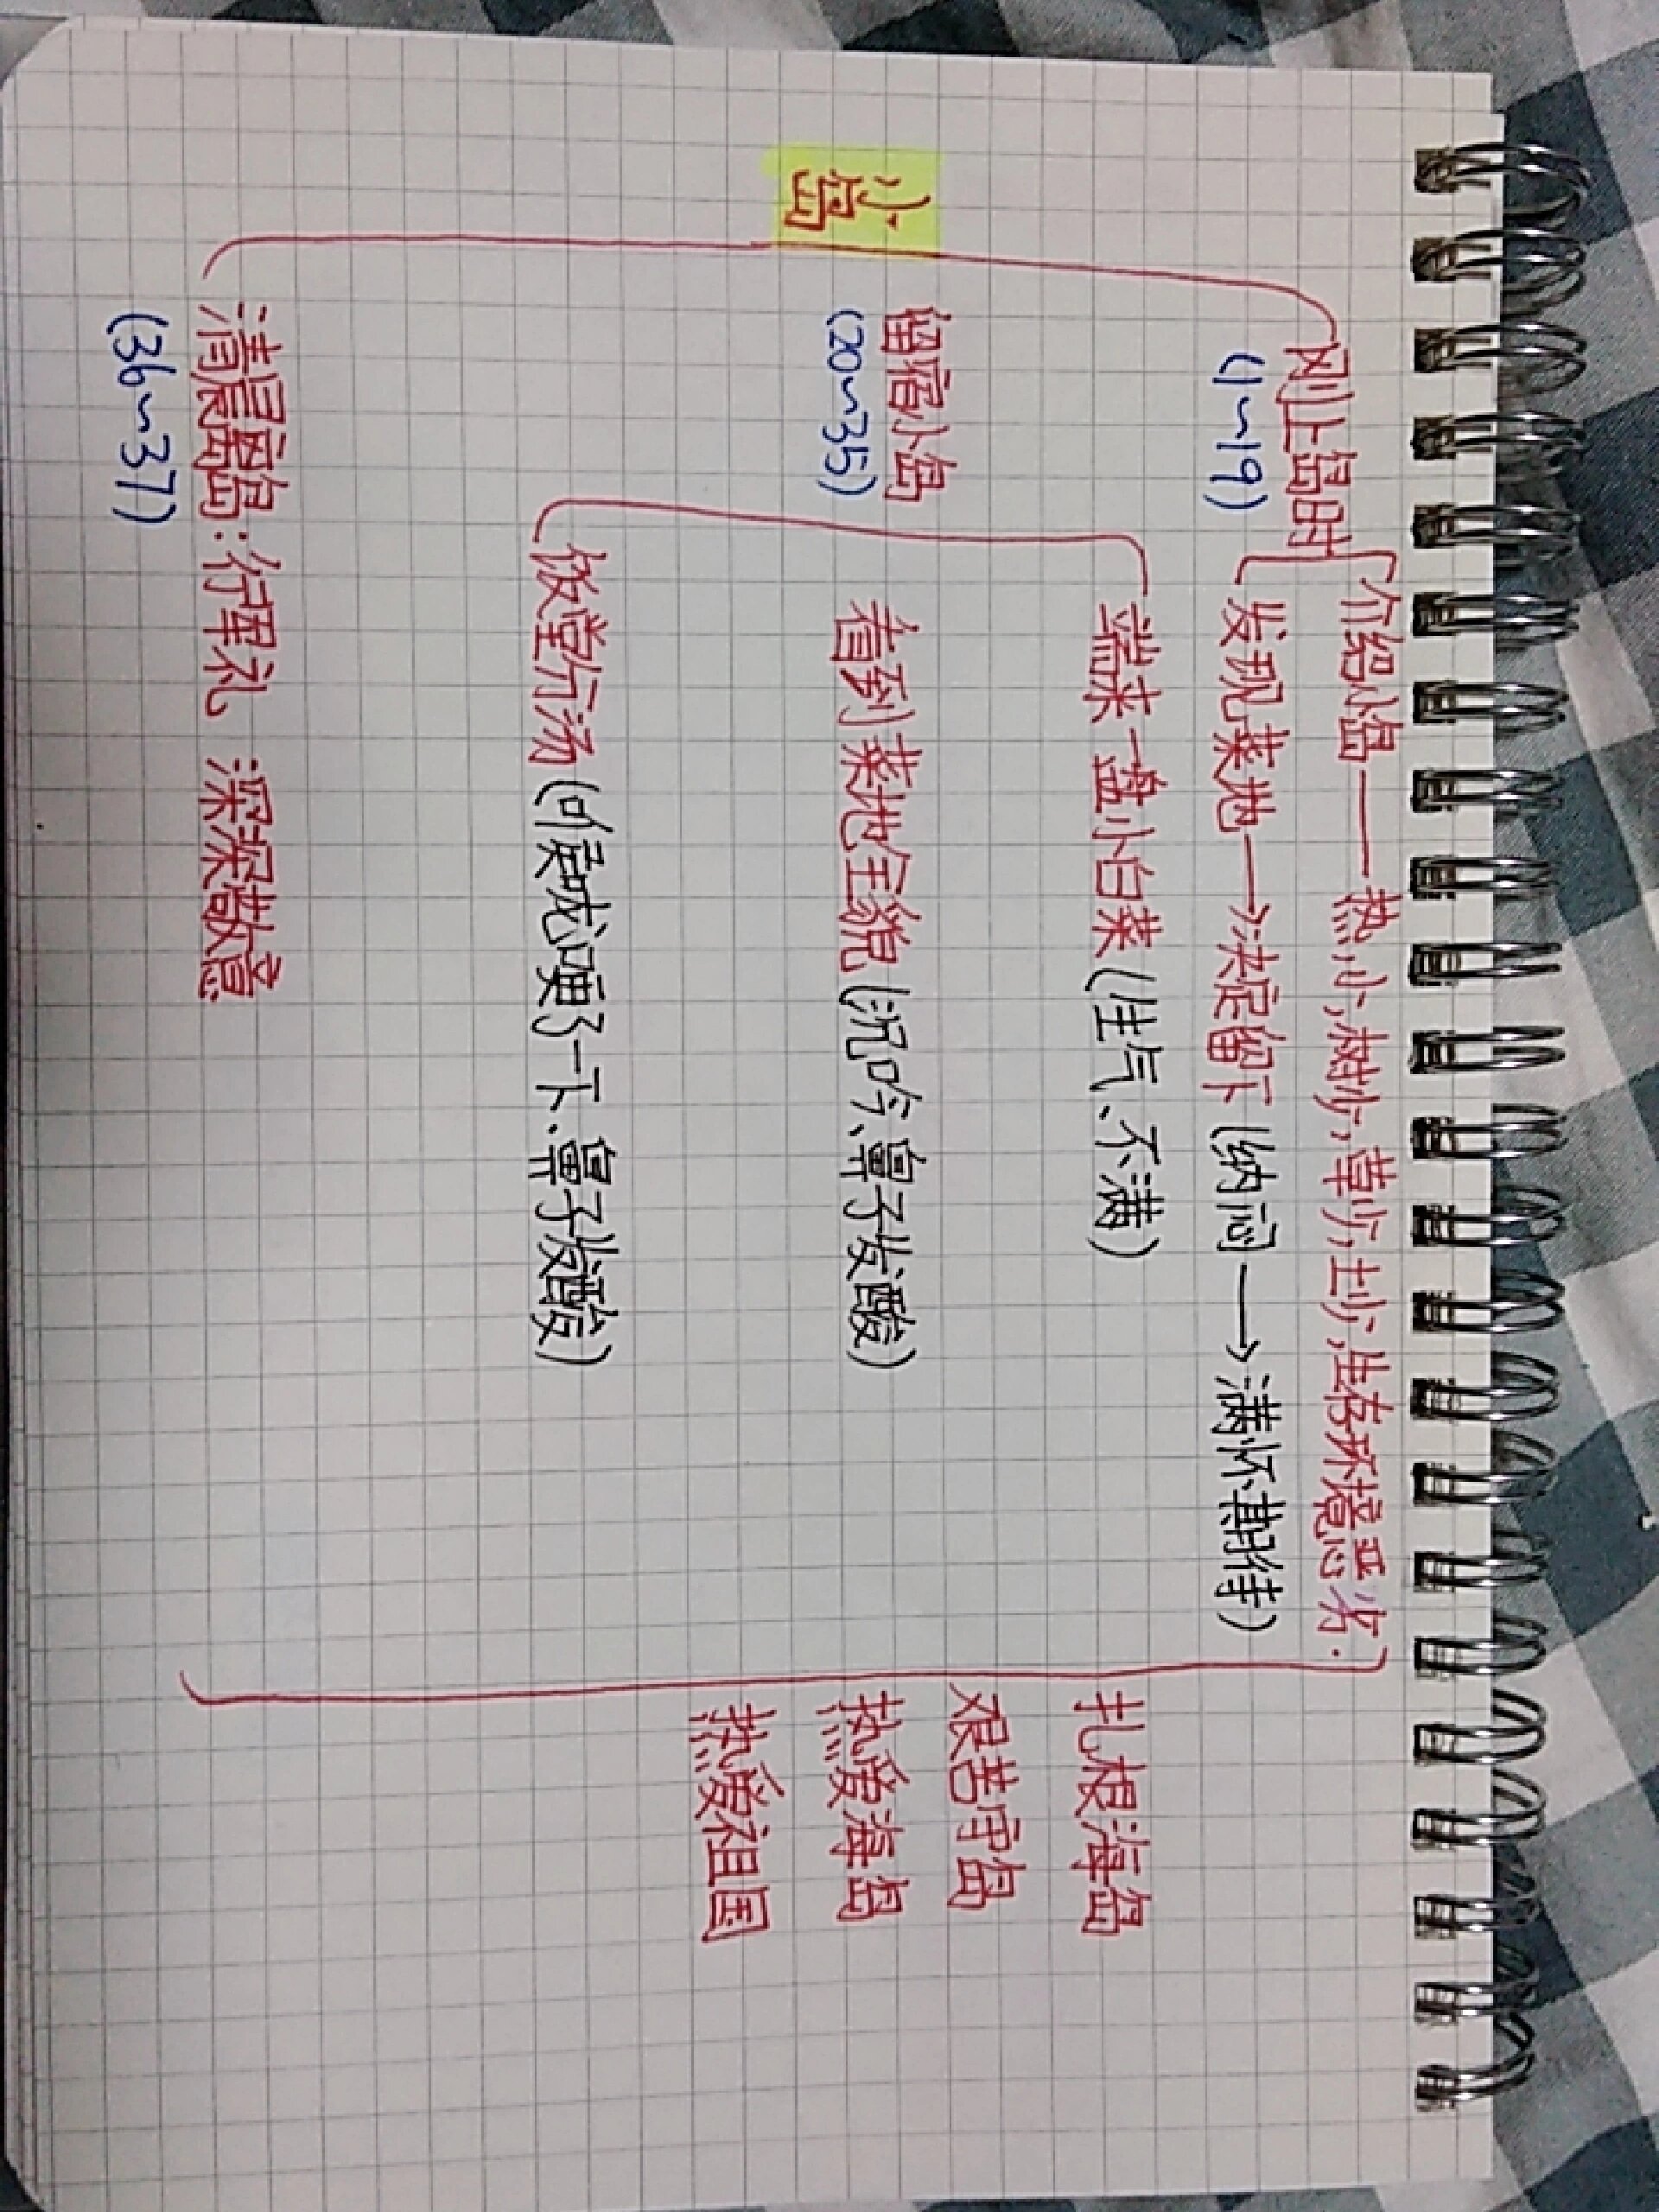 小岛
刚上岛时
(1~19)
介绍小岛——热,小,树少,草少,土少,生存环境恶劣.
发现菜地—→决定留下(纳闷—→满怀期待)
留宿小岛
(20~35)
端来一盘小白菜(生气、不满)
看到菜地全貌(沉吟、鼻子发酸)
饭堂分汤(喉咙哽了一下、鼻子发酸)
清晨离岛:行军礼 深深敬意
(36~37)
扎根海岛
艰苦守岛
热爱海岛
热爱祖国